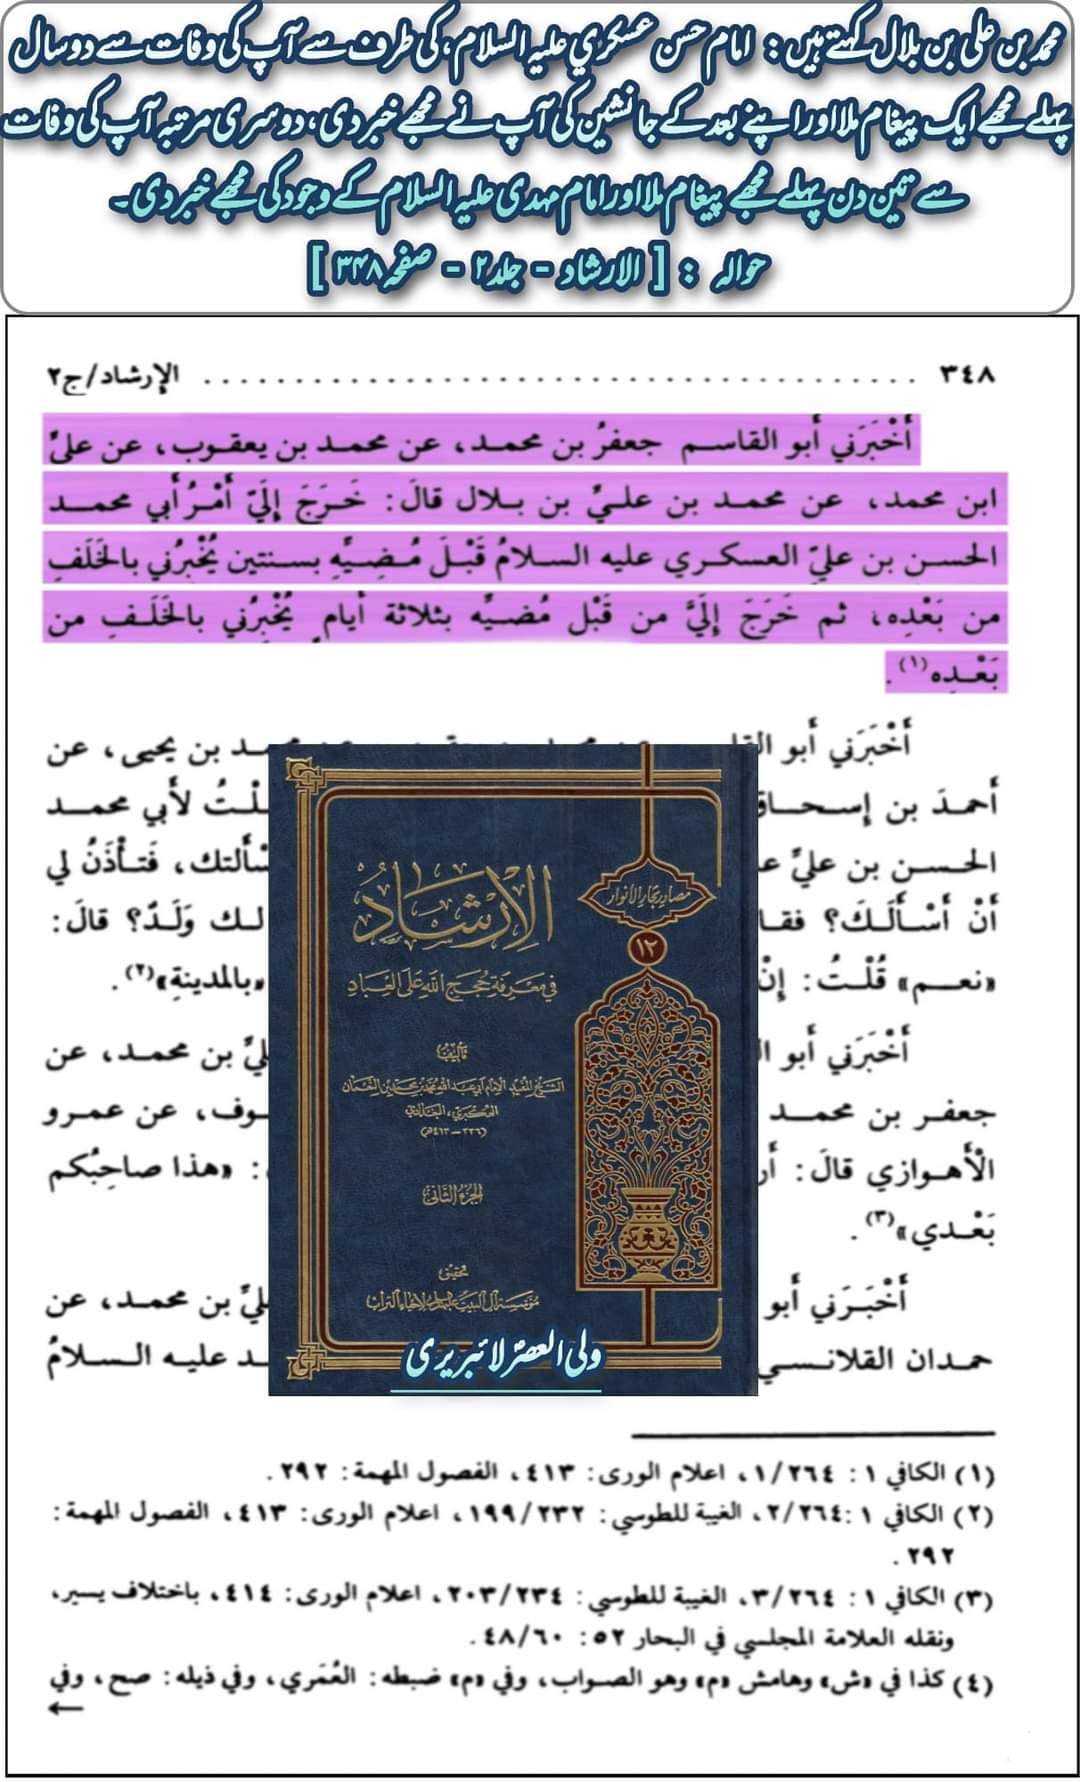 محمد بن علی بن بلال کہتے ہیں: امام حسن عسکري علیہ السلام، کی طرف سے آپ کی وفات سے دو سال
پہلے مجھے ایک پیغام ملا اور اپنے بعد کے جانشین کی آپ نے مجھے خبر دی، دوسری مرتبہ آپ کی وفات
سے تین دن پہلے مجھے پیغام ملا اور امام مہدی علیہ السلام کے وجود کی مجھے خبر دی۔
حوالہ : [ الارشاد - جلد ۲ - صفحہ ۳۴۸ ]
٣٤٨ ........................................ الإرشاد/ج٢
أَخْبَرَني أبو القاسم جعفرُ بن محمد، عن محمد بن يعقوب، عن عليِّ
ابن محمد، عن محمد بن عليِّ بن بلال قالَ: خَرَجَ إِليَّ أَمْرُ أَبي محمد
الحسن بن عليّ العسكري عليه السلامُ قَبْلَ مُضِيِّهِ بسنتين يُخْبِرُني بالخَلَفِ
من بَعْدِه، ثم خَرَجَ إِليَّ من قَبْل مُضيِّه بثلاثة أيام يُخْبِرُني بالخَلَفِ من
بَعْدِه(١).
أَخْبَرَني أبو القا مد بن يحيى، عن
أَحمدَ بن إسحاق لْتُ لأبي محمد
الحسن بن عليٍّ ع سْألتك، فَتأْذَنُ لي
أَنْ أَسْألَكَ؟ فقا لك وَلَدٌ؟ قالَ:
«نعم» قُلْتُ: إنْ «بالمدينةِ»(٢).
أَخْبَرَني أبو ا ليِّ بن محمد، عن
جعفر بن محمد وف، عن عمرو
الأهوازي قالَ: أَر : «هذا صاحِبُكم
بَعْدي»(٣).
أَخْبَرَني أبو ليِّ بن محمد، عن
حمدان القلانسي د عليه السلامُ
مصادر بحار الأنوار
١٢
الإرشاد
في معرفة حجج الله على العباد
تأليف
الشيخ المفيد الإمام أبي عبد الله محمد بن محمد بن النعمان
العكبري، البغدادي
(٣٣٦ - ٤١٣ هـ)
الجزء الثاني
تحقيق
مؤسسة آل البيت عليهم السلام لإحياء التراث
ولی العصرؑ لائبریری
(١) الكافي ١ : ٢٦٤/١، اعلام الورى: ٤١٣، الفصول المهمة: ٢٩٢.
(٢) الكافي ١ :٢٦٤/٢، الغيبة للطوسي: ٢٣٢/١٩٩، اعلام الورى: ٤١٣، الفصول المهمة:
٢٩٢.
(٣) الكافي ١ : ٢٦٤/٣، الغيبة للطوسي: ٢٣٤/٢٠٣، اعلام الورى: ٤١٤، باختلاف يسير،
ونقله العلامة المجلسي في البحار ٥٢: ٦٠/٤٨.
(٤) كذا في «ش» وهامش «م» وهو الصواب، وفي «م» ضبطه: العُمَري، وفي ذيله: صح، وفي